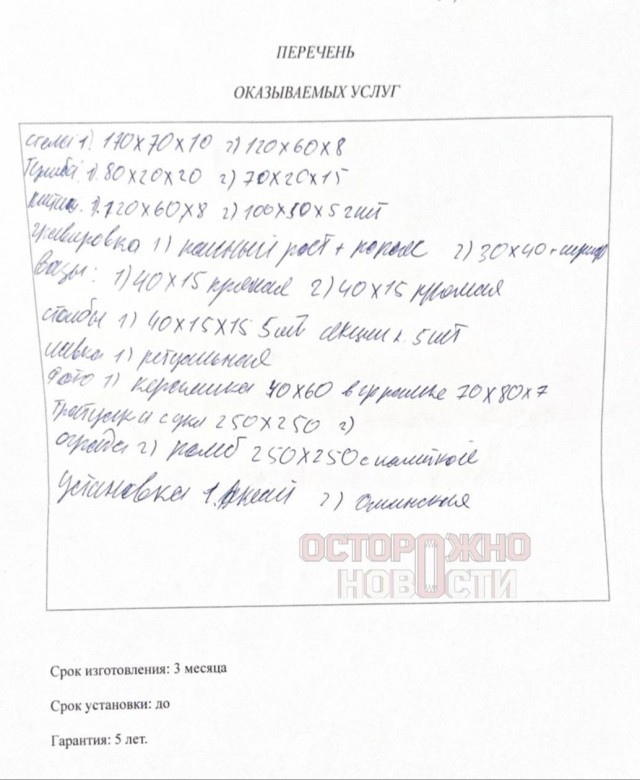 ПЕРЕЧЕНЬ
ОКАЗЫВАЕМЫХ УСЛУГ
1) 170х70х10 2) 120х60х8
1) 80х20х20 2) 70х20х15
1) 120х60х8 2) 100х50х5 2шт
гравировка 1) полный рост + 2) 30х40 +
Вазы: 1) 40х15 прямая 2) 40х15 прямая
столбы 1) 40х15х15 5шт секции 5шт
лавка 1) ритуальная
Фото 1) керамика 40х60 в 70х80х7
250х250 2)
ограда 2) ромб 250х250 с калиткой
Установка 1. Аксай 2)
ОСТОРОЖНО
НОВОСТИ
Срок изготовления: 3 месяца
Срок установки: до
Гарантия: 5 лет.